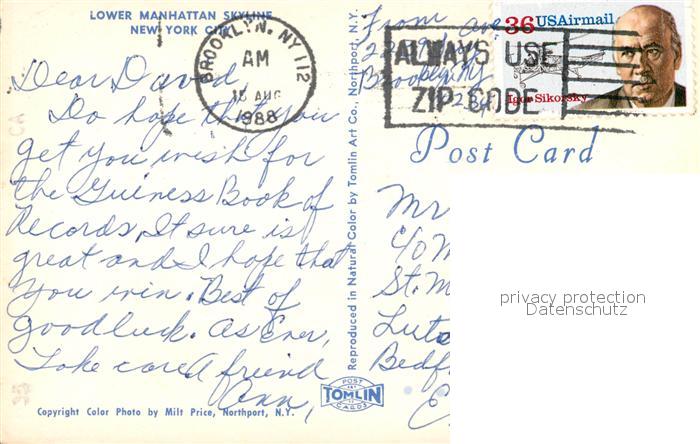 LOWER MANHATTAN SKYLINE
NEW YORK CITY
BROOKLYN, NY 112
AM
15 AUG
1988
Dear David
Do hope that you
get you wish for
the Guiness Book of
Records, It sure is
great and I hope that
you win. Best of
good luck. As Ever,
Take care A friend
Ann,
Copyright Color Photo by Milt Price, Northport, N.Y.
Reproduced in Natural Color by Tomlin Art Co., Northport, N.Y.
POST
TOMLIN
CARDS
From
36 USAirmail
Igor Sikorsky
ALWAYS USE
ZIP CODE
Post Card
Mr
c/o M
St. M
Luto
Bedf
E
privacy protection
Datenschutz